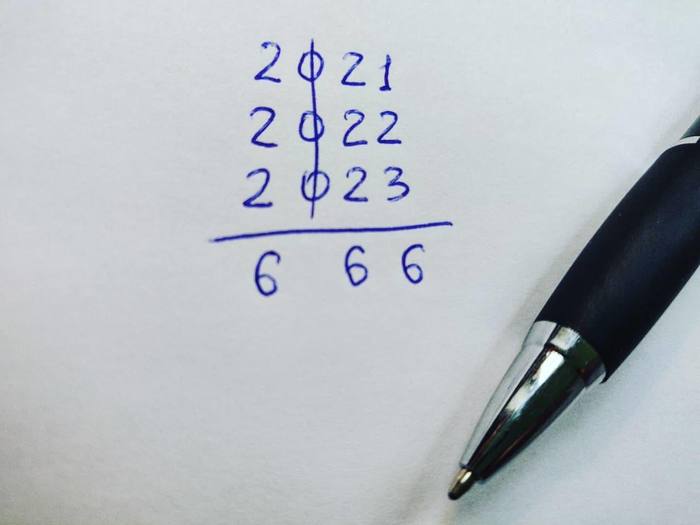 2021
2022
2023
6 66